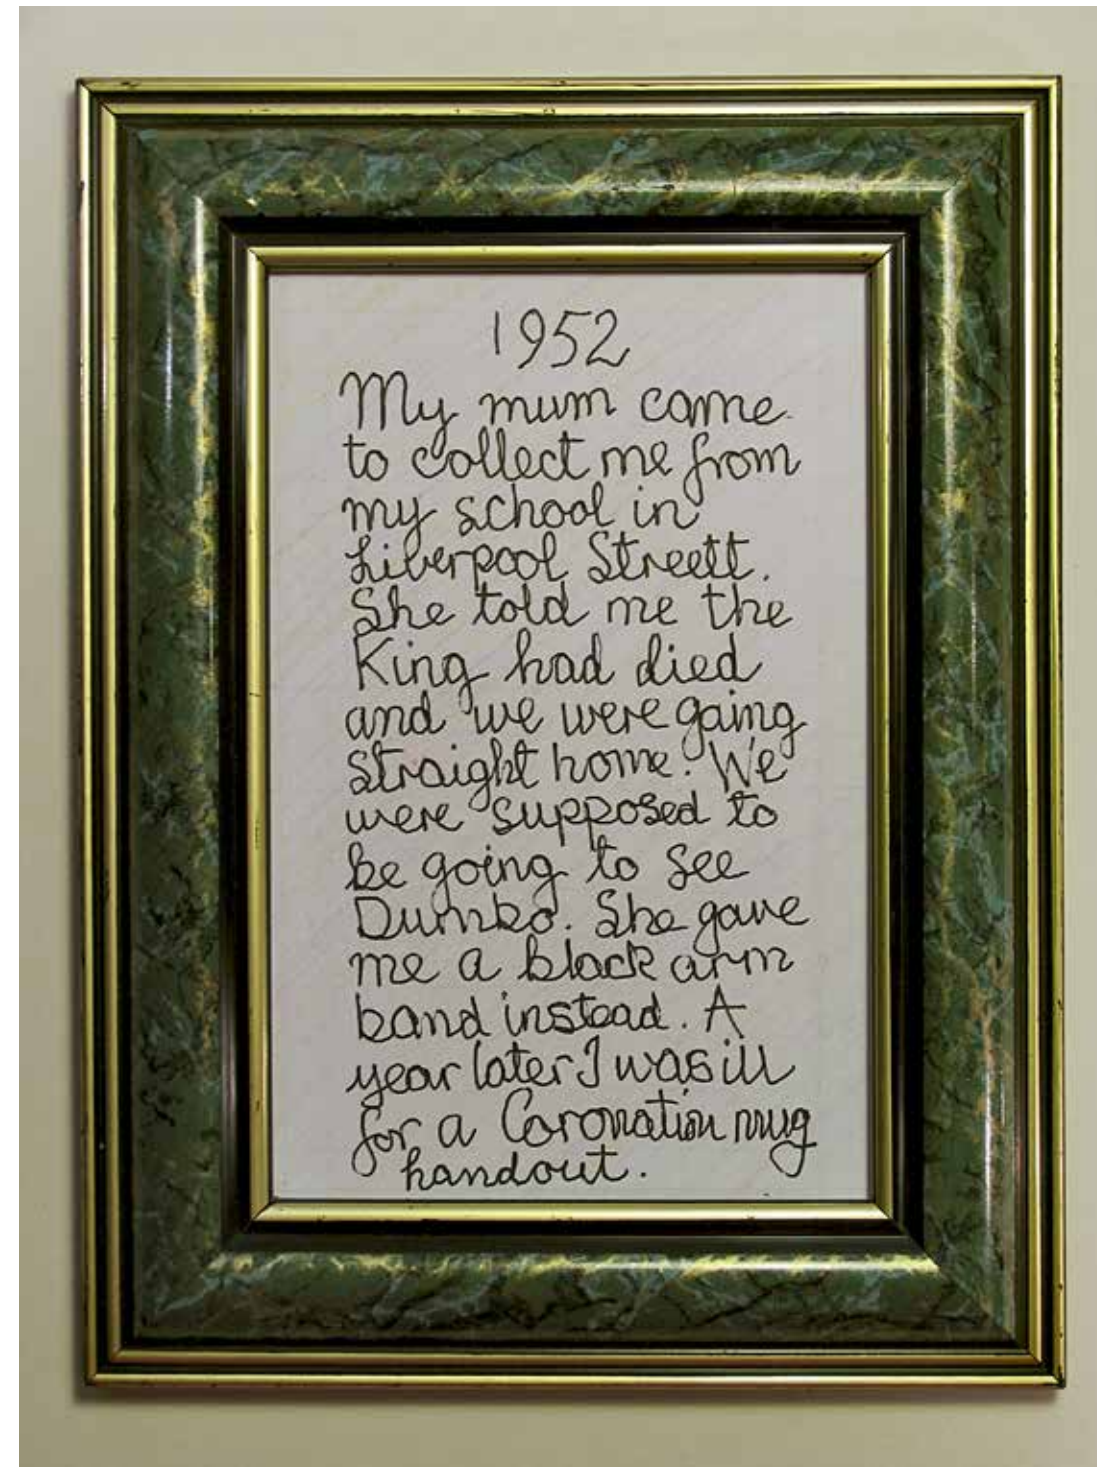 1952
My mum came
to collect me from
my school in
Liverpool Streett.
She told me the
King had died
and we were going
straight home. We
were supposed to
be going to see
Dumbo. She gave
me a black arm
band instead. A
year later I was ill
for a Coronation mug
handout.